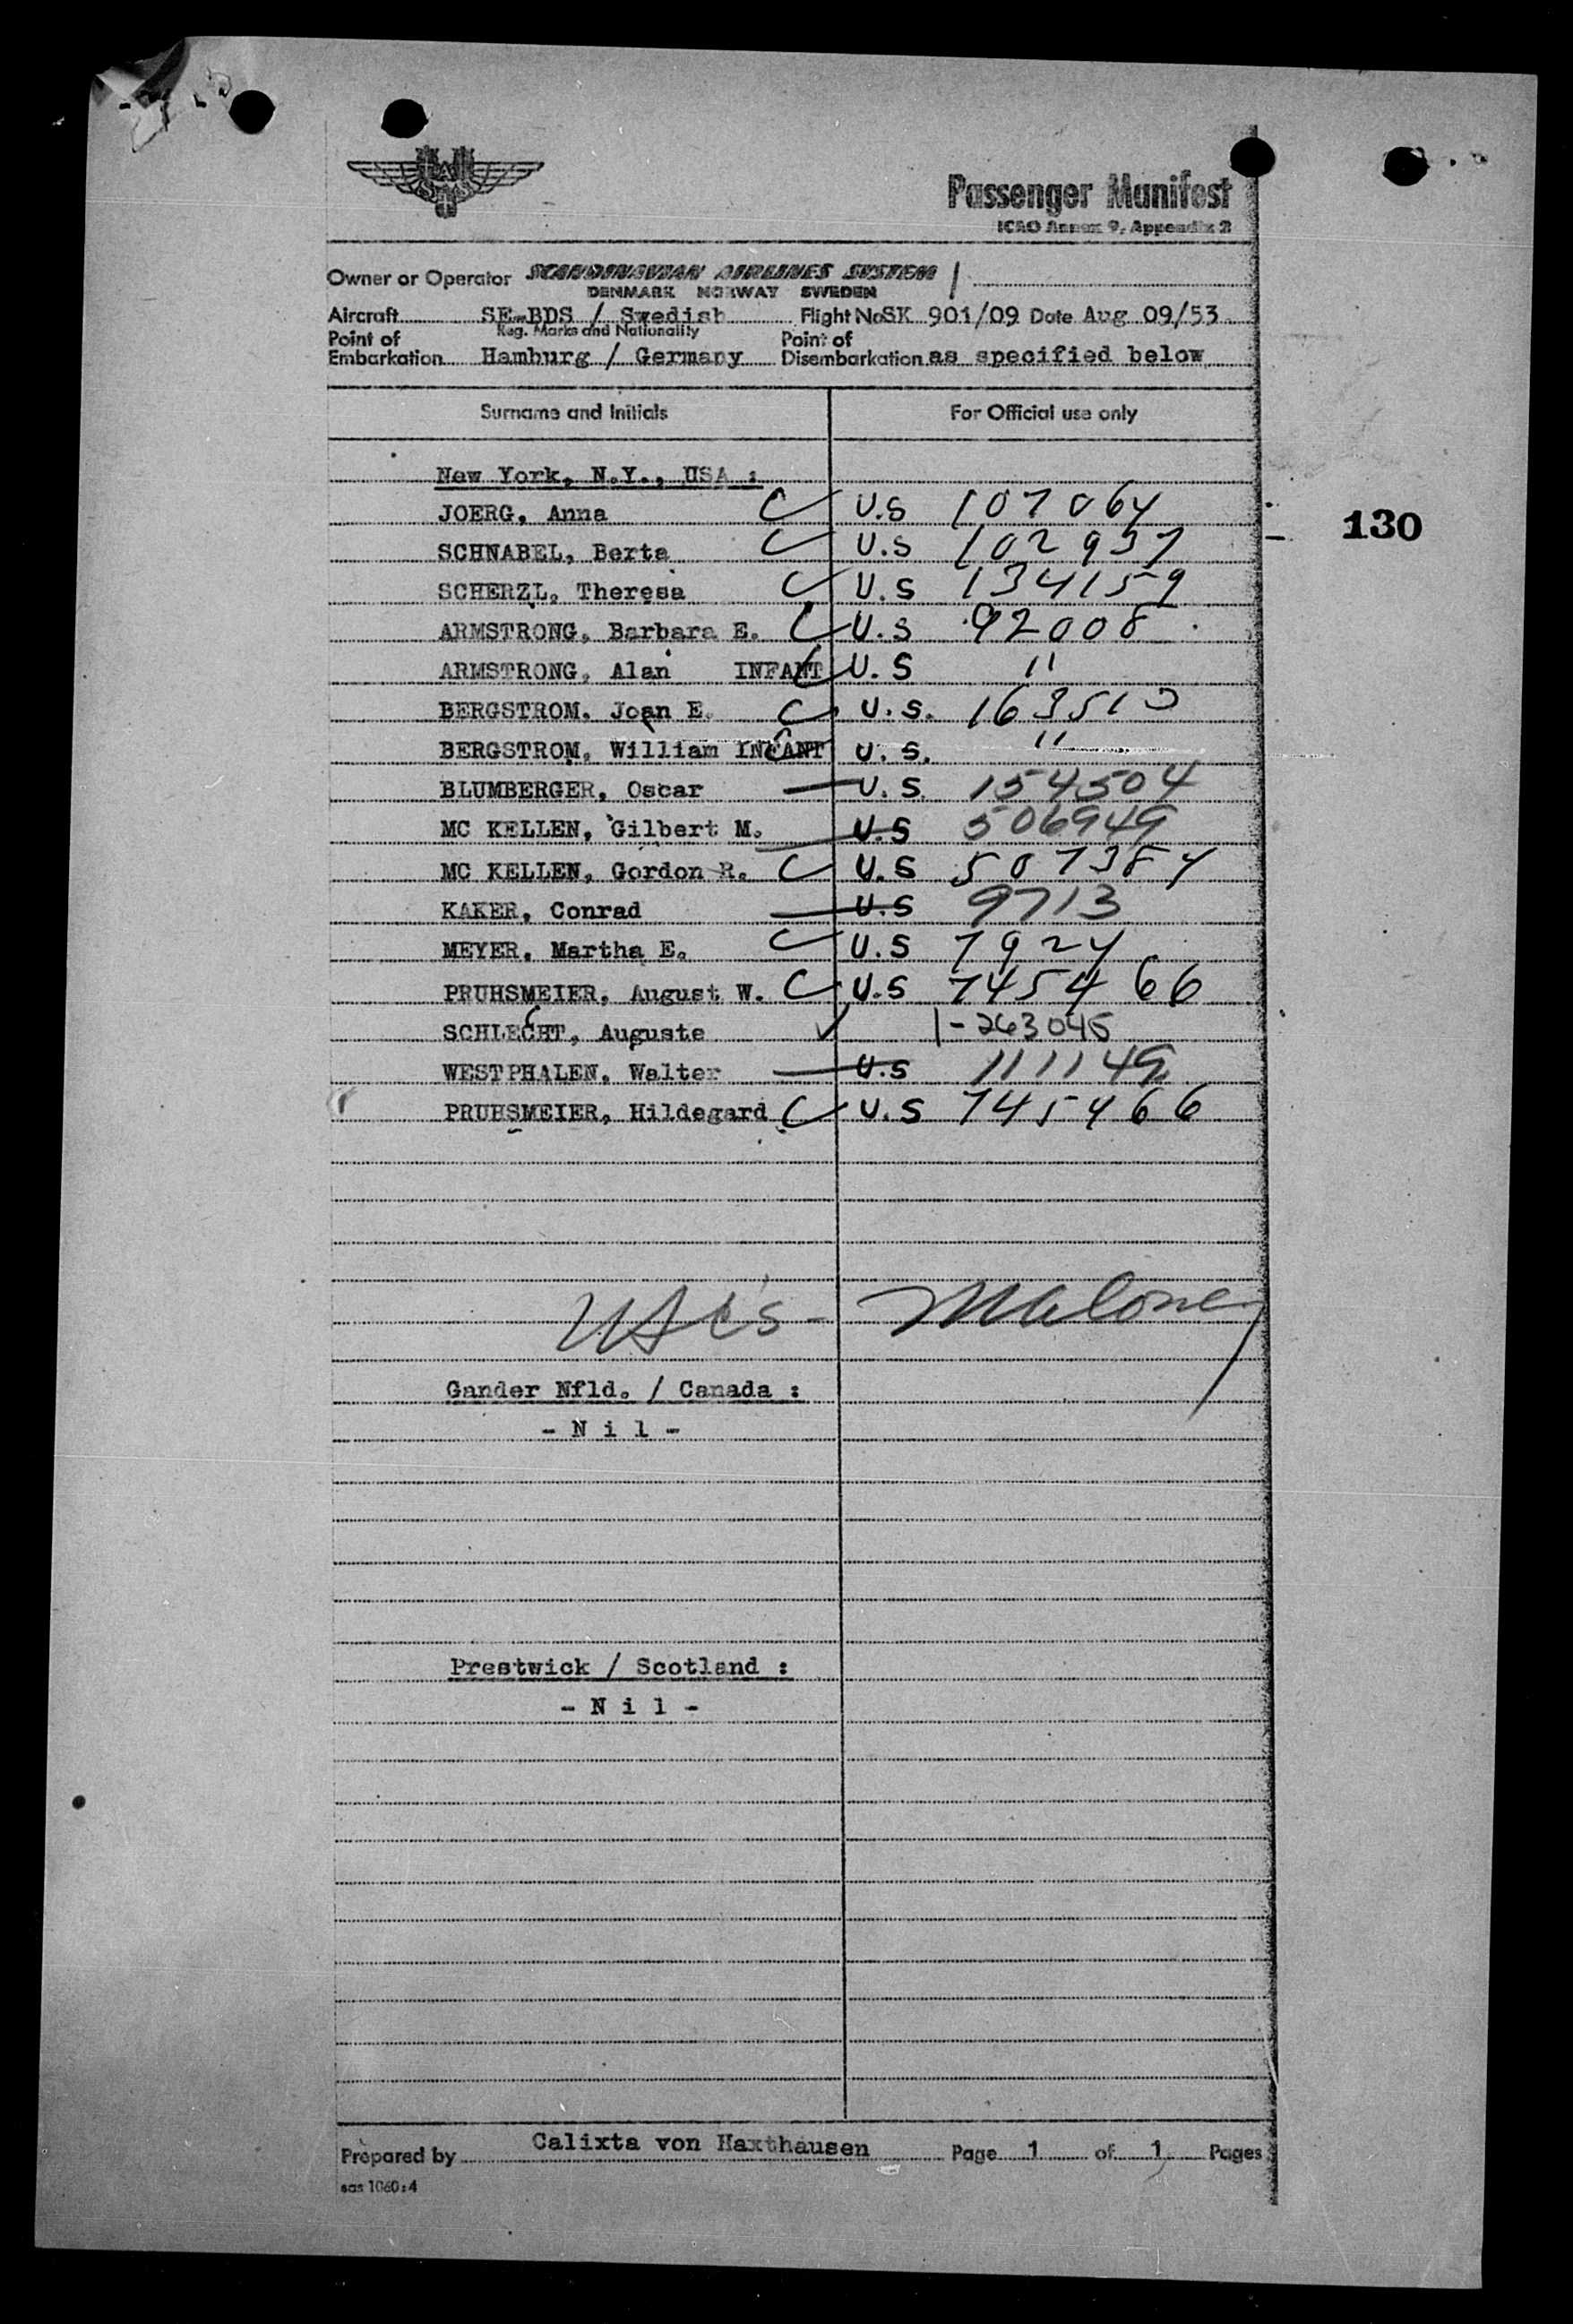 SAS
Passenger Manifest
ICAO Annex 9, Appendix 2
Owner or Operator SCANDINAVIAN AIRLINES SYSTEM
DENMARK NORWAY SWEDEN
Aircraft SE-BDS / Swedish Flight No SK 901/09 Date Aug 09/53
Reg. Marks and Nationality
Point of Embarkation Hamburg / Germany Point of Disembarkation as specified below
Surname and Initials For Official use only
New York, N.Y., USA :
JOERG, Anna U.S 107064
130
SCHNABEL, Berta U.S 102937
SCHERZL, Theresa U.S 134159
ARMSTRONG, Barbara E. U.S 92008
ARMSTRONG, Alan INFANT U.S "
BERGSTROM, Joan E. U.S. 163513
BERGSTROM, William INFANT U.S. "
BLUMBERGER, Oscar U.S. 154504
MC KELLEN, Gilbert M. U.S 506949
MC KELLEN, Gordon R. U.S 507384
KAKER, Conrad U.S 9713
MEYER, Martha E. U.S 7924
PRUHSMEIER, August W. U.S 745466
SCHLECHT, Auguste 1-263045
WESTPHALEN, Walter U.S 111149
PRUHSMEIER, Hildegard U.S 745466
Maloney
Gander Nfld. / Canada :
- N i l -
Prestwick / Scotland :
- N i l -
Prepared by Calixta von Haxthausen Page 1 of 1 Pages
sas 1060:4